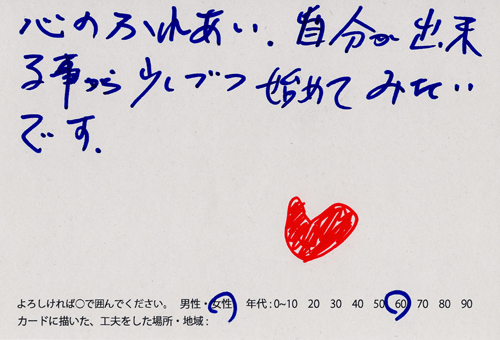 心のふれあい.自分が出来
る事から少しづつ始めてみたい
です.
よろしければ○で囲んでください。 男性・女性 年代:0~10 20 30 40 50 60 70 80 90
カードに描いた、工夫をした場所・地域: